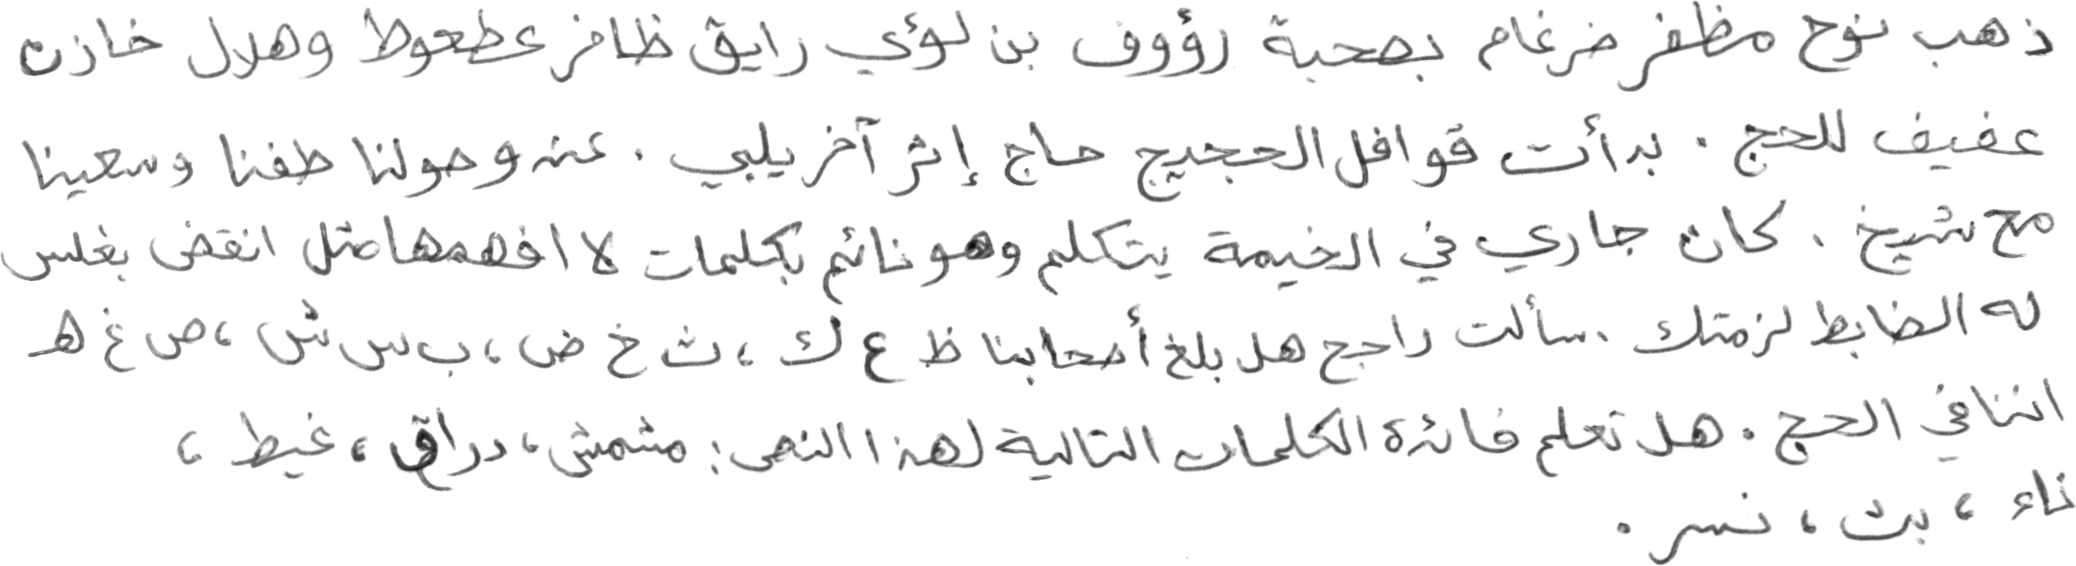 ذهب نوح مظفر ضرغام بصحبة رؤوف بن لؤي رايق ظافر عطعوط وهلال خازن
عفيف للحج . بدأت قوافل الحجيج حاج إثر آخر يلبي . عنه وحولنا طفنا وسعينا
مع شيخ . كان جاري في الخيمة يتكلم وهو نائم بكلمات لا افهمها مثل انقض بغلس
له الضابط لزمتك . سألت راجح هل بلغ أصحابنا ظ ع ك ، ث خ ض ، ب س ش ، ص غ هـ
اننا في الحج . هل تعلم فائدة الكلمات التالية لهذا النص : مشمش ، دراق ، غيط ،
ناء ، بث ، نسر .